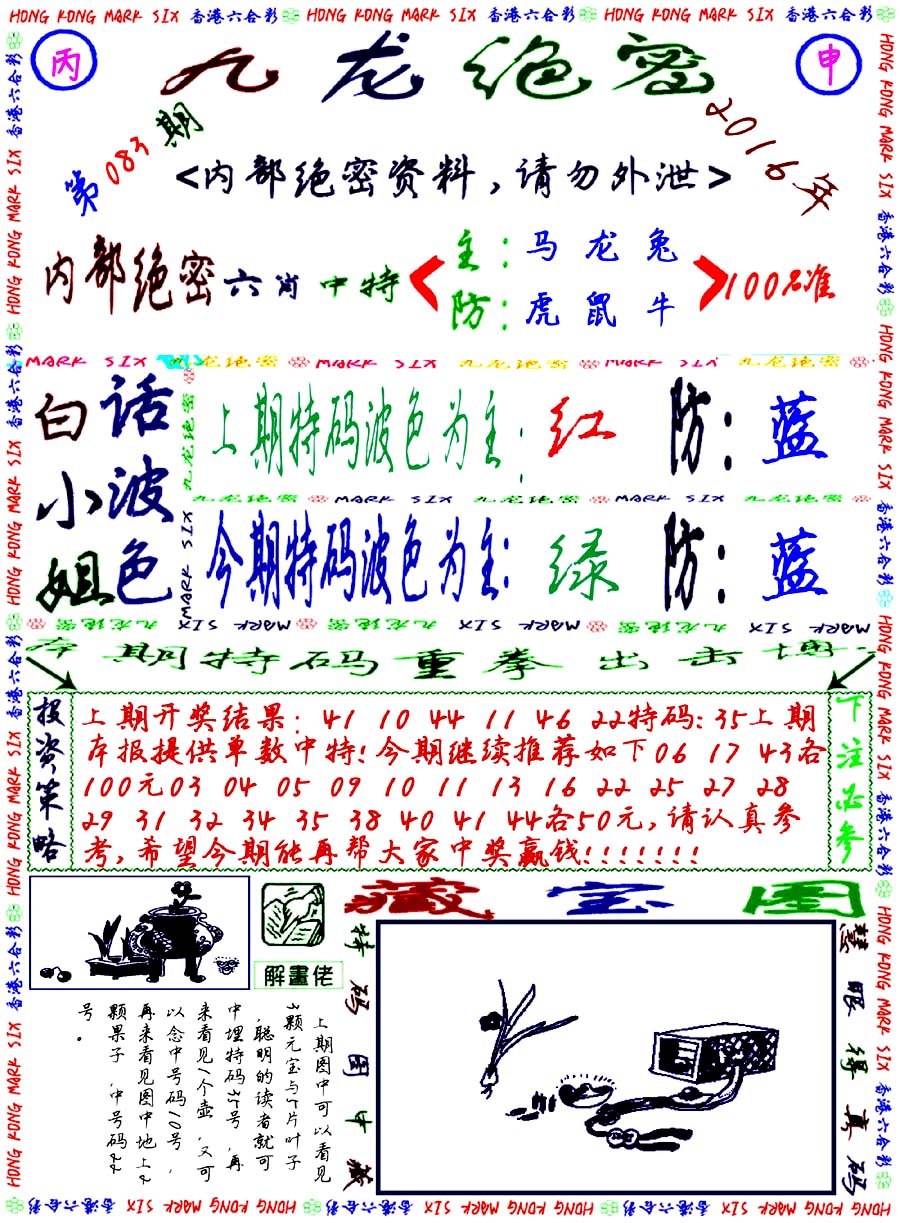 HONG KONG MARK SIX 香港六合彩 HONG KONG MARK SIX 香港六合彩 HONG KONG MARK SIX 香港六合彩
丙
九龙绝密
申
第083期
2016年
<内部绝密资料,请勿外泄>
内部绝密六肖中特
主:马龙兔
防:虎鼠牛
100%准
MARK SIX 九龙绝密 MARK SIX 九龙绝密 MARK SIX 九龙绝密
白话小波姐色
上期特码波色为主:红 防:蓝
九龙绝密 MARK SIX 九龙绝密 MARK SIX 九龙绝密
今期特码波色为主:绿 防:蓝
本期特码重拳出击博
投资策略
上期开奖结果:41 10 44 11 46 22特码:35上期
本报提供单数中特!今期继续推荐如下06 17 43各
100元03 04 05 09 10 11 13 16 22 25 27 28
29 31 32 34 35 38 40 41 44各50元,请认真参
考,希望今期能再帮大家中奖赢钱!!!!!!!
下注必参
解畫佬
藏宝图
上期图中可以看见
颗元宝与5片叶子
,聪明的读者就可
中埋特码35号,再
来看见1个壶,又可
以念中号码10号,
再来看见图中地上2
颗果子,中号码22
号。
特码图中藏
慧眼得真码
HONG KONG MARK SIX 香港六合彩 HONG KONG MARK SIX 香港六合彩 HONG KONG MARK SIX 香港六合彩